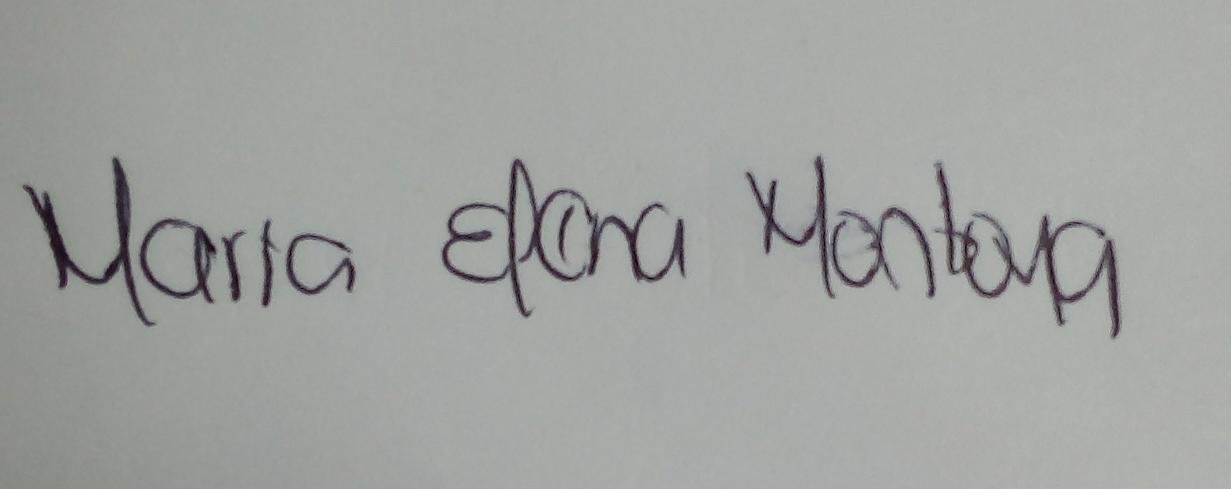 Maria Elena Montoya